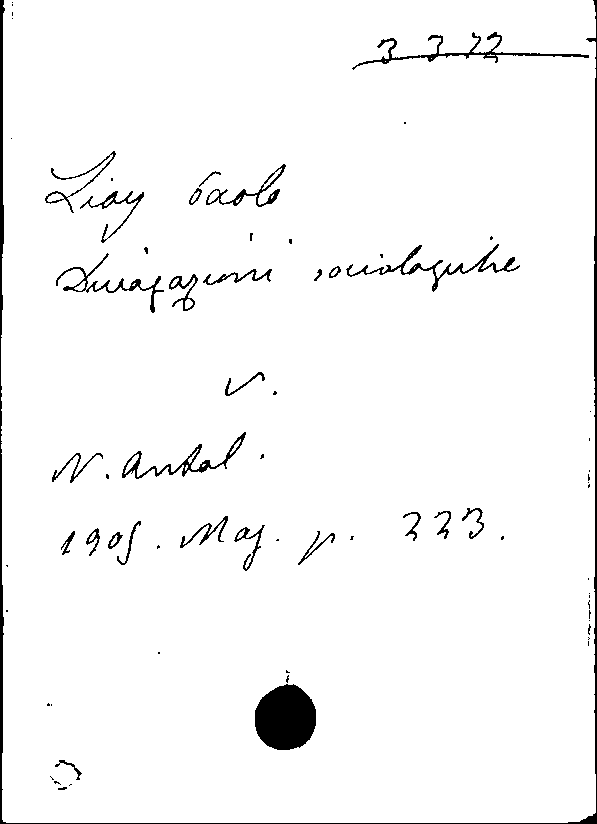 3 3 72
Lioy Paolo
Divagazioni sociologiche
v.
N. Antol.
1905. Mag. p. 223.